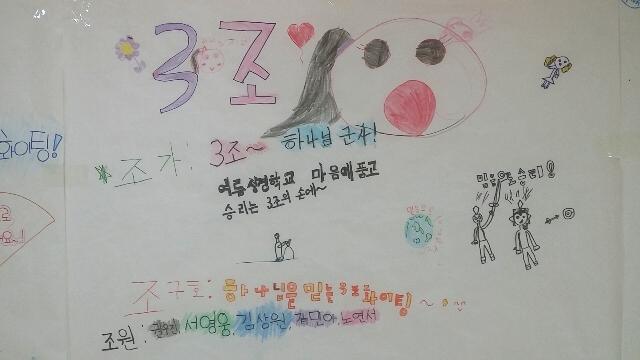 3조
화이팅!
조가: 3조~ 하나님 군사!
여름성경학교 마음에 품고
승리는 3조의 손에~
믿음으로 승리!
조구호: 하나님을 믿는 3조 화이팅~
조원: 서영웅, 김상원, 김민아, 노연서